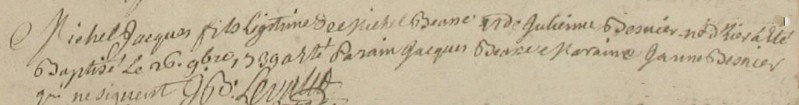 Michel Jacques fils legitime de Michel Besne et de Julienne Besnier né d'hier a été
Baptisé Le 26. 9bre, 1739 a eté Parain Jacques Besne e Maraine Janne Besnier
qui ne signent